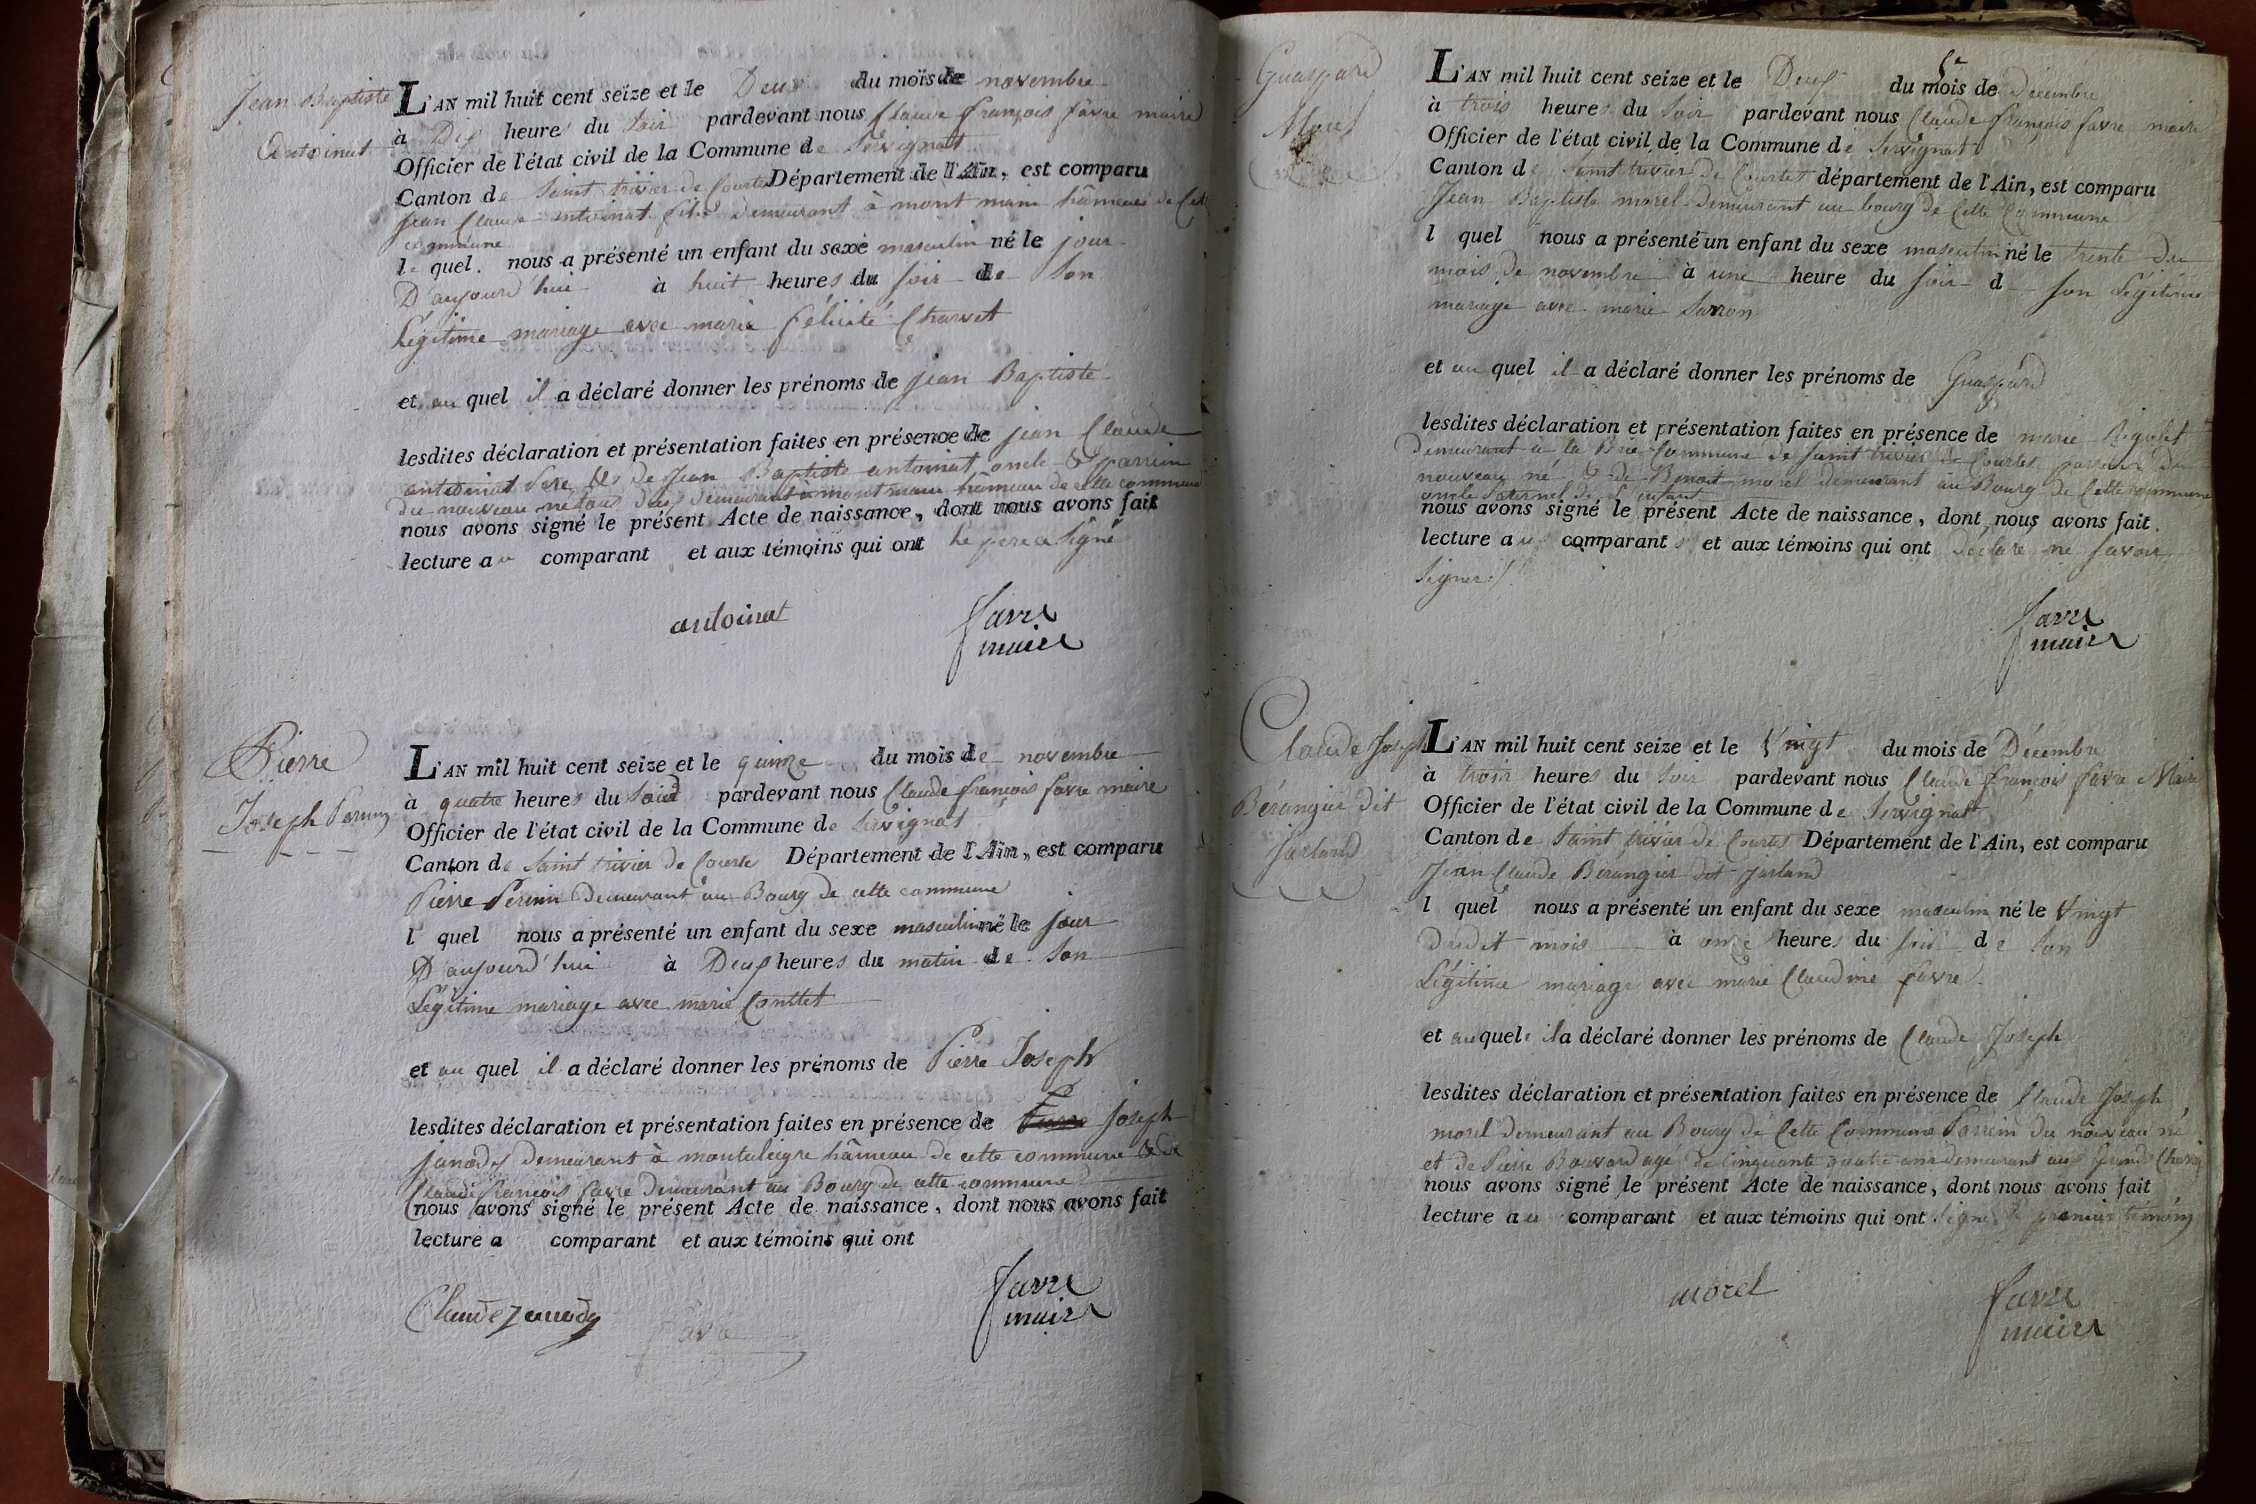 Jean Baptiste
Antoinat
L'AN mil huit cent seize et le Deux du mois de novembre
à Dix heures du soir pardevant nous Claude françois favre maire
Officier de l'état civil de la Commune de Servignat
Canton de Saint trivier de Courtes Département de l'Ain, est comparu
Jean Claude antoinat fils demeurant à mont main hâmeau de Cette
commune
le quel nous a présenté un enfant du sexe masculin né le jour
D'aujourd'hui à huit heures du soir de Son
Légitime mariage avec marie félicité Charvet
et au quel il a déclaré donner les prénoms de jean Baptiste
lesdites déclaration et présentation faites en présence de jean Claude
antoinat Pere & de Jean Baptiste antoinat oncle & parrin
du nouveau né tous deux demeurant à mont main hameau de cette commune
nous avons signé le présent Acte de naissance, dont nous avons fait
lecture au comparant et aux témoins qui ont le pere a Signé
antoinat
favre
maire
Pierre
Joseph Perrin
L'AN mil huit cent seize et le quinze du mois de novembre
à quatre heures du Soir pardevant nous Claude françois favre maire
Officier de l'état civil de la Commune de Servignat
Canton de Saint trivier de Courte Département de l'Ain, est comparu
Pierre Perrin Demeurant au Bourg de cette commune
l quel nous a présenté un enfant du sexe masculin né le jour
D'aujourd'hui à Deux heures du matin de Son
Légitime mariage avec marie Conttet
et au quel il a déclaré donner les prénoms de Pierre Joseph
lesdites déclaration et présentation faites en présence de Pierre Joseph
janody demeurant à montaleigre hâmeau de cette commune & de
Claude françois favre Demeurant au Bourg de cette commune
nous avons signé le présent Acte de naissance, dont nous avons fait
lecture a comparant et aux témoins qui ont
Claude Janody
favre
favre
maire
Guaspard
Morel
L'AN mil huit cent seize et le Deux du mois de Décembre
à trois heures du Soir pardevant nous Claude françois favre maire
Officier de l'état civil de la Commune de Servignat
Canton de Saint trivier de Courtes département de l'Ain, est comparu
Jean Baptiste morel demeurant au bourg de Cette Commune
l quel nous a présenté un enfant du sexe masculin né le trente du
mois de novembre à une heure du soir d Son Légitime
mariage avec marie Sarron
et au quel il a déclaré donner les prénoms de Guaspard
lesdites déclaration et présentation faites en présence de marie
demeurant à la Commune de Saint trivier de Courtes du
nouveau né & de Benoit morel demeurant au Bourg de Cette commune
oncle Paternel de l'enfant
nous avons signé le présent Acte de naissance, dont nous avons fait
lecture au comparants et aux témoins qui ont déclaré ne savoir
Signer
favre
maire
Claude Joseph
Bérangier dit
Jarland
L'AN mil huit cent seize et le Vingt du mois de Décembre
à trois heures du Soir pardevant nous Claude françois favre Maire
Officier de l'état civil de la Commune de Servignat
Canton de Saint trivier de Courtes Département de l'Ain, est comparu
Jean Claude Bérangier dit Jarland
l quel nous a présenté un enfant du sexe masculin né le Vingt
Dudit mois à onze heures du soir de Son
Légitime mariage avec marie Claudine favre
et auquel il a déclaré donner les prénoms de Claude Joseph
lesdites déclaration et présentation faites en présence de Claude Joseph
morel demeurant au Bourg de Cette Commune Parrein du nouveau né
et de Pierre Bouvard age de Cinquante quatre ans demeurant au Grand
nous avons signé le présent Acte de naissance, dont nous avons fait
lecture au comparant et aux témoins qui ont Signé le premier témoin
morel
favre
maire